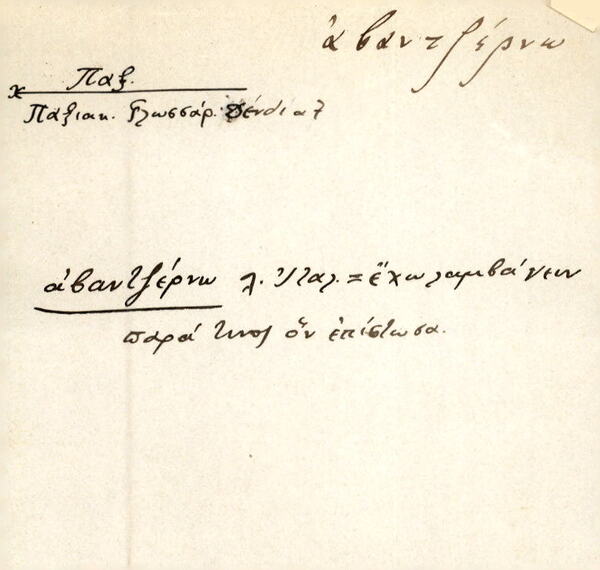 ἀβαντζέρνω
x Παξ.
Παξιακ. Γλωσσάρ. σ. 7
ἀβαντζέρνω λ. Ἰταλ. = ἔχω λαμβάνειν
παρά τινος ὅν ἐπίστωσα.